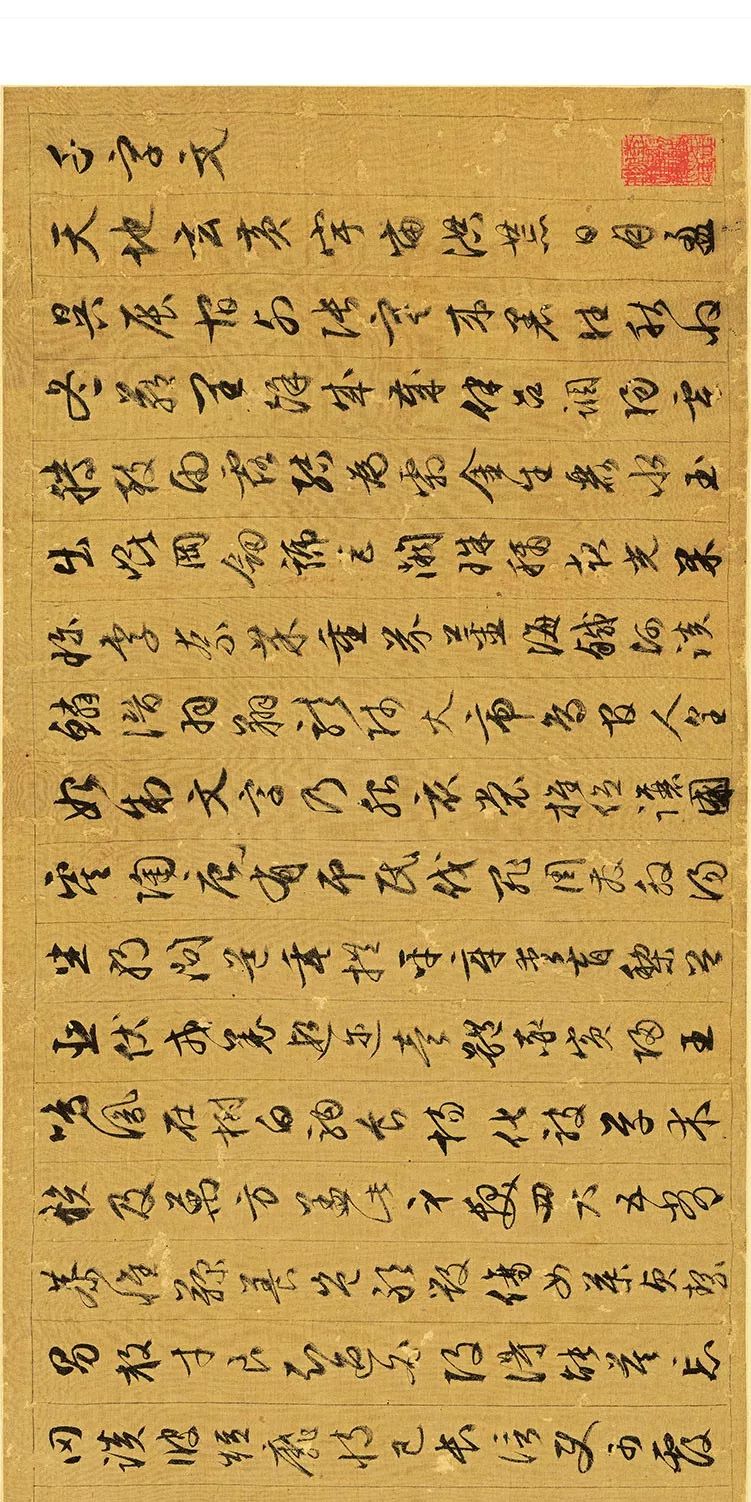 千字文
天地玄黃宇宙洪荒日月盈
昃辰宿列張寒來暑往秋收
冬藏閏餘成歲律呂調陽雲
騰致雨露結為霜金生麗水玉
出崑岡劍號巨闕珠稱夜光果
珍李柰菜重芥薑海鹹河淡
鱗潛羽翔龍師火帝鳥官人皇
始制文字乃服衣裳推位讓國
虞陶唐有弔民伐罪周發殷湯
坐朝問道垂拱平章愛育黎首
臣伏戎羌遐邇壹體率賓歸王
鳴鳳在樹白駒食場化被草木
賴及萬方蓋此身髮四大五常
恭惟鞠養豈敢毀傷女慕貞潔
男效才良知過必改得能莫忘
罔談彼短靡恃己長信使可覆